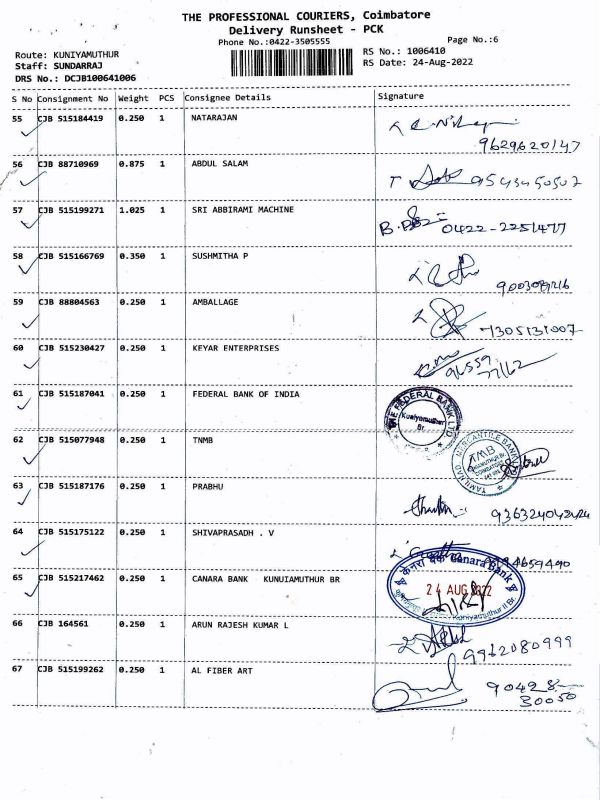 THE PROFESSIONAL COURIERS, Coimbatore
Delivery Runsheet - PCK
Phone No.:0422-3505555
Page No.:6
Route: KUNIYAMUTHUR
Staff: SUNDARRAJ
DRS No.: DCJB100641006
RS No.: 1006410
RS Date: 24-Aug-2022
S No Consignment No Weight PCS Consignee Details Signature
55 CJB 515184419 0.250 1 NATARAJAN
9629620147
56 CJB 88710969 0.875 1 ABDUL SALAM
57 CJB 515199271 1.025 1 SRI ABBIRAMI MACHINE
0422-2251477
58 CJB 515166769 0.350 1 SUSHMITHA P
59 CJB 88804563 0.250 1 AMBALLAGE
7305131007
60 CJB 515230427 0.250 1 KEYAR ENTERPRISES
96559
77162
61 CJB 515187041 0.250 1 FEDERAL BANK OF INDIA
THE FEDERAL BANK LTD
Kuniyamuthur
Br.
62 CJB 515077948 0.250 1 TNMB
TAMILNAD MERCANTILE BANK
TMB
63 CJB 515187176 0.250 1 PRABHU
64 CJB 515175122 0.250 1 SHIVAPRASADH . V
65 CJB 515217462 0.250 1 CANARA BANK KUNUIAMUTHUR BR
केनरा बैंक Canara Bank
24 AUG 2022
Kuniyamuthur II Br.
66 CJB 164561 0.250 1 ARUN RAJESH KUMAR L
9962080999
67 CJB 515199262 0.250 1 AL FIBER ART
90428-
30050